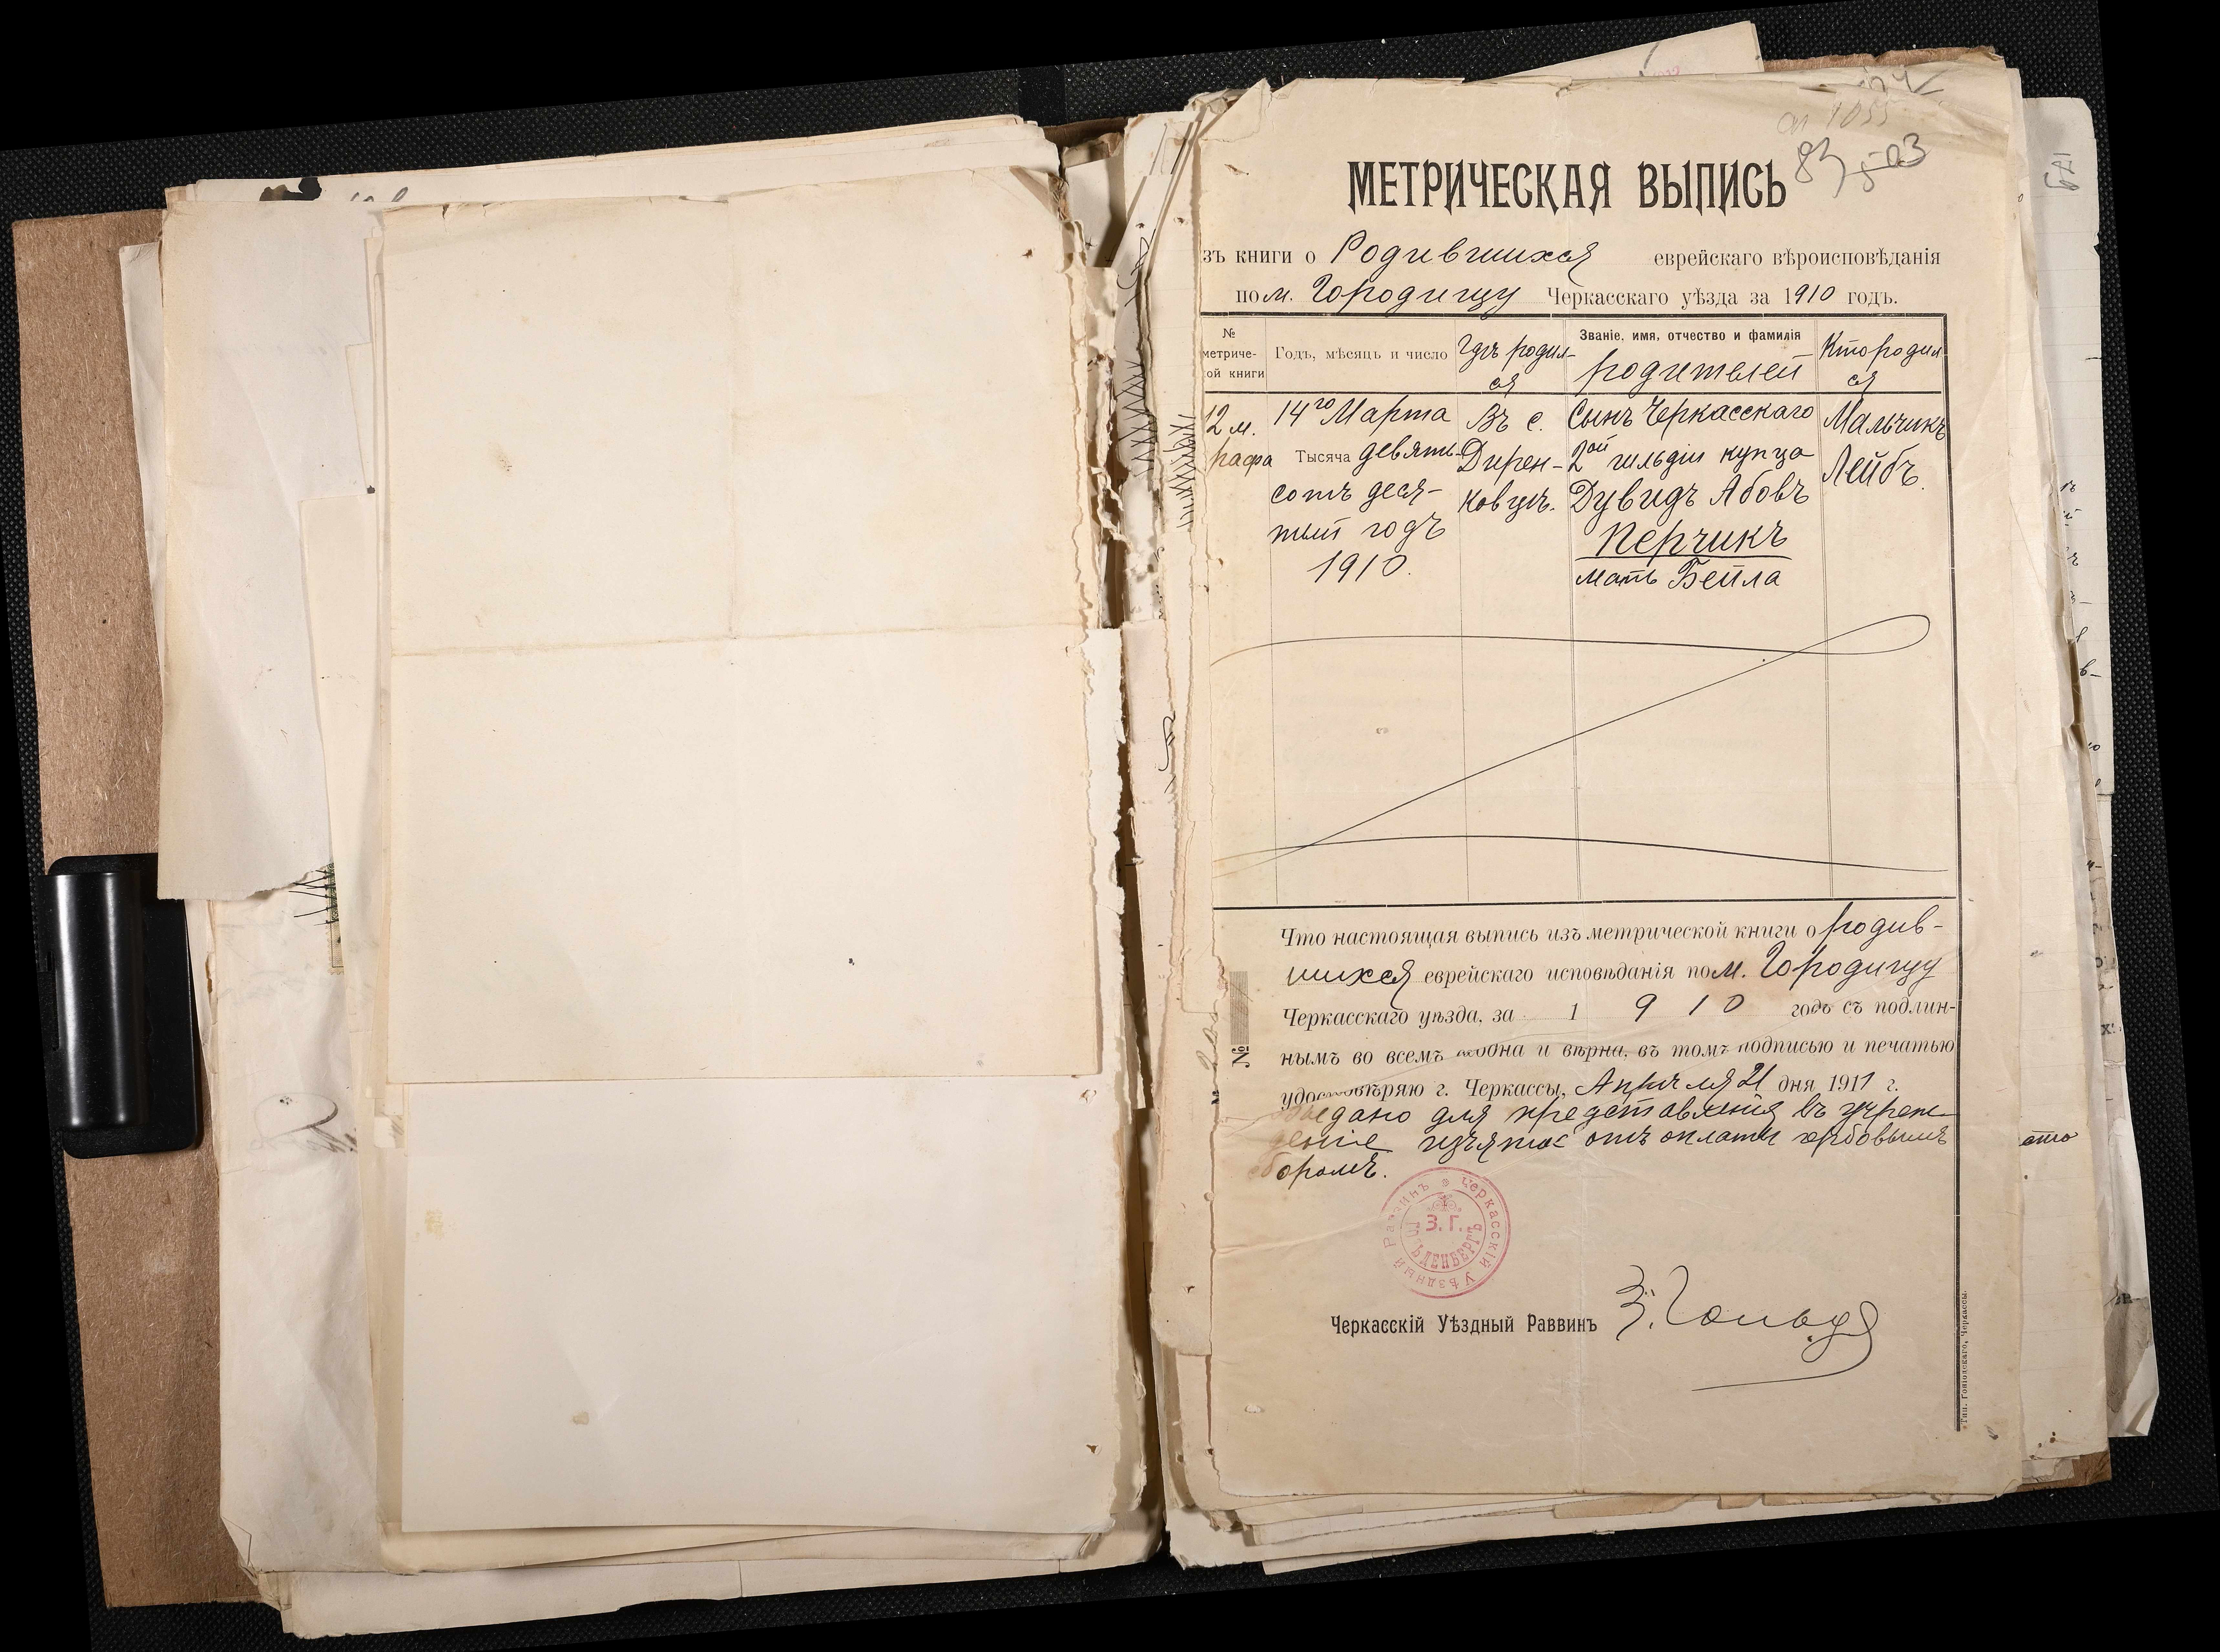 1055
83 503
МЕТРИЧЕСКАЯ ВЫПИСЬ
зъ книги о Родившихся еврейскаго вѣроисповѣданія
по м. Городищу Черкасскаго уѣзда за 1910 годъ.
№ метриче- ой книги
Годъ, мѣсяцъ и число
Гдѣ родил-
ся
Званіе, имя, отчество и фамилія
родителей
Кто родил
ся
12 м.
рафа
14го Марта
Тысяча девять-
сотъ деся-
тый годъ
1910.
Въ с.
Дирен-
ковцѣ.
Сынъ Черкасскаго
2ой гильдіи купца
Дувидъ Абовъ
Перчикъ
мать Бейла
Мальчикъ
Лейбъ.
Что настоящая выпись изъ метрической книги о родив-
шихся еврейскаго исповѣданія по м. Городищу
Черкасскаго уѣзда, за 1910 годъ съ подлин-
нымъ во всемъ сходна и вѣрна, въ томъ подписью и печатью
№
удостовѣряю г. Черкассы, Апрѣля 21 дня 1911 г.
дано для представленія въ учреж-
деніе изъятое отъ оплаты гербовымъ
сборомъ.
Черкасскій Уѣздный Раввинъ
З. Г.
Черкасскій Уѣздный Раввинъ З. Гольд
Тип. Гоніодскаго, Черкассы.